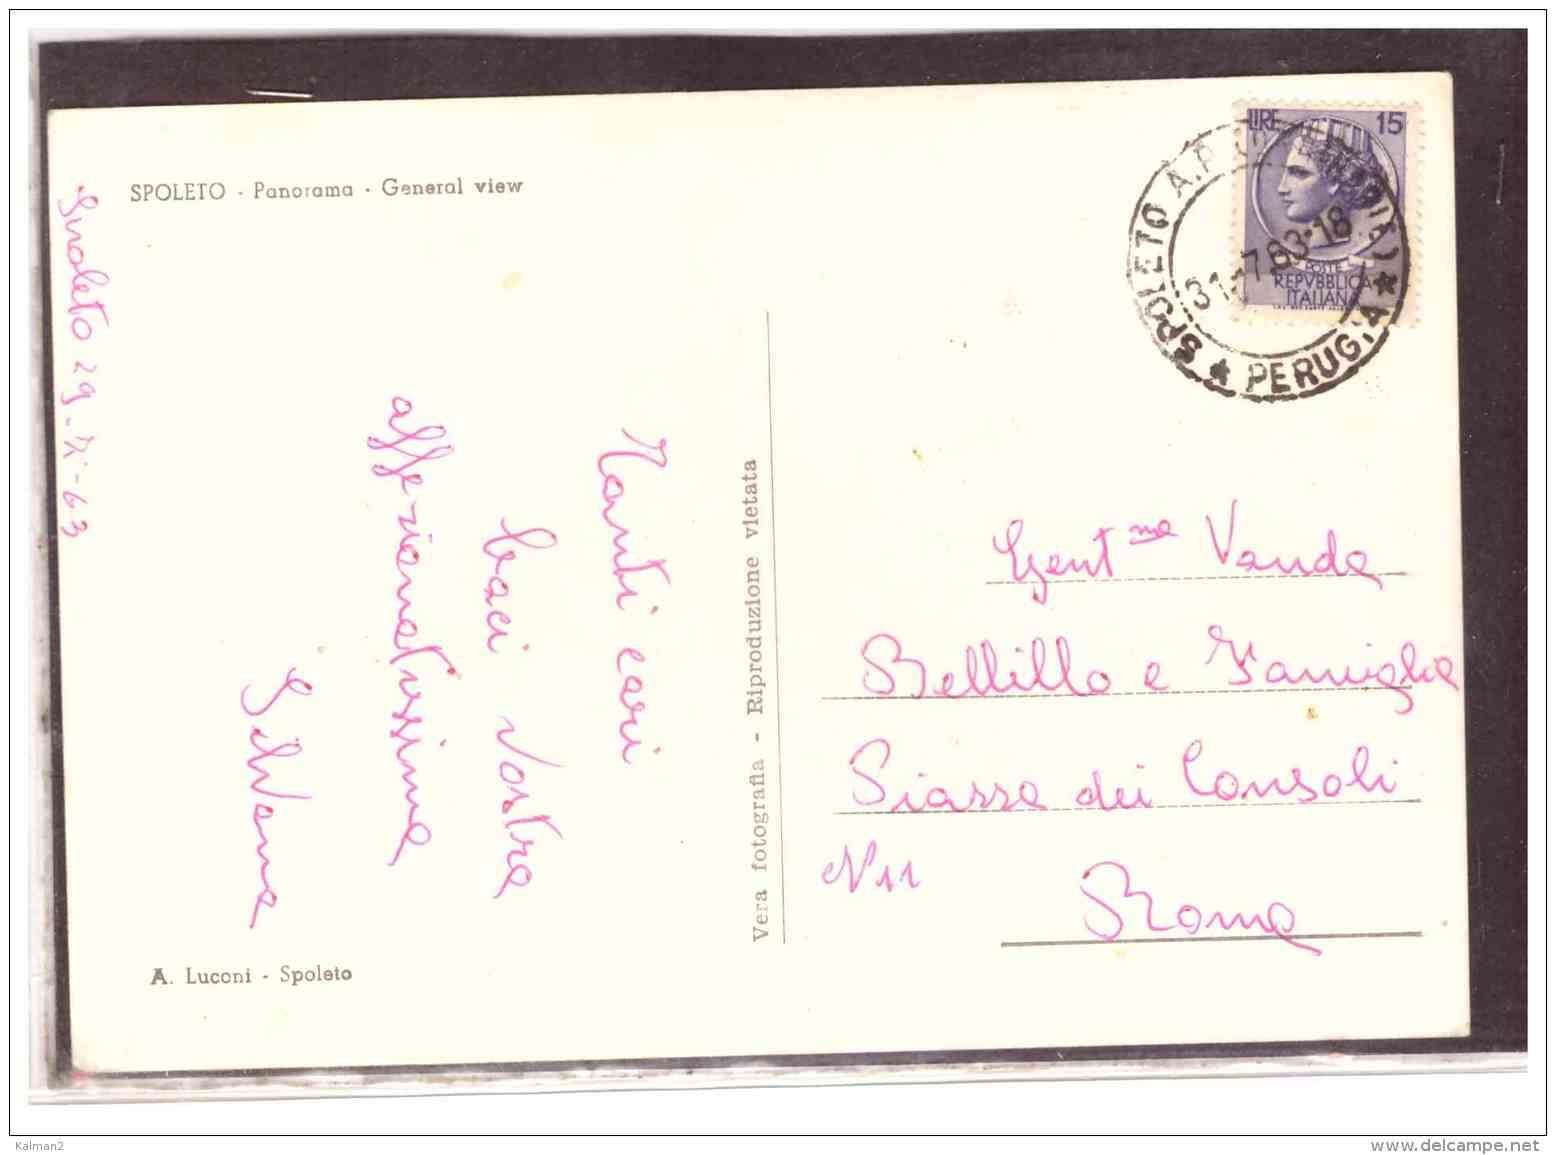 SPOLETO - Panorama - General view
Spoleto 29 - 63
Tanti cari
baci vostra
affezionatissima
Silvana
A. Luconi - Spoleto
Vera fotografia - Riproduzione vietata
LIRE 15
POSTE
REPVBBLICA
ITALIANA
SPOLETO A.P.
PERUGIA
31-7.63-18
Gent ma Vanda
Bellillo e Famiglia
Piazza dei Consoli
N 11
Roma
Kalman2
www.delcampe.net